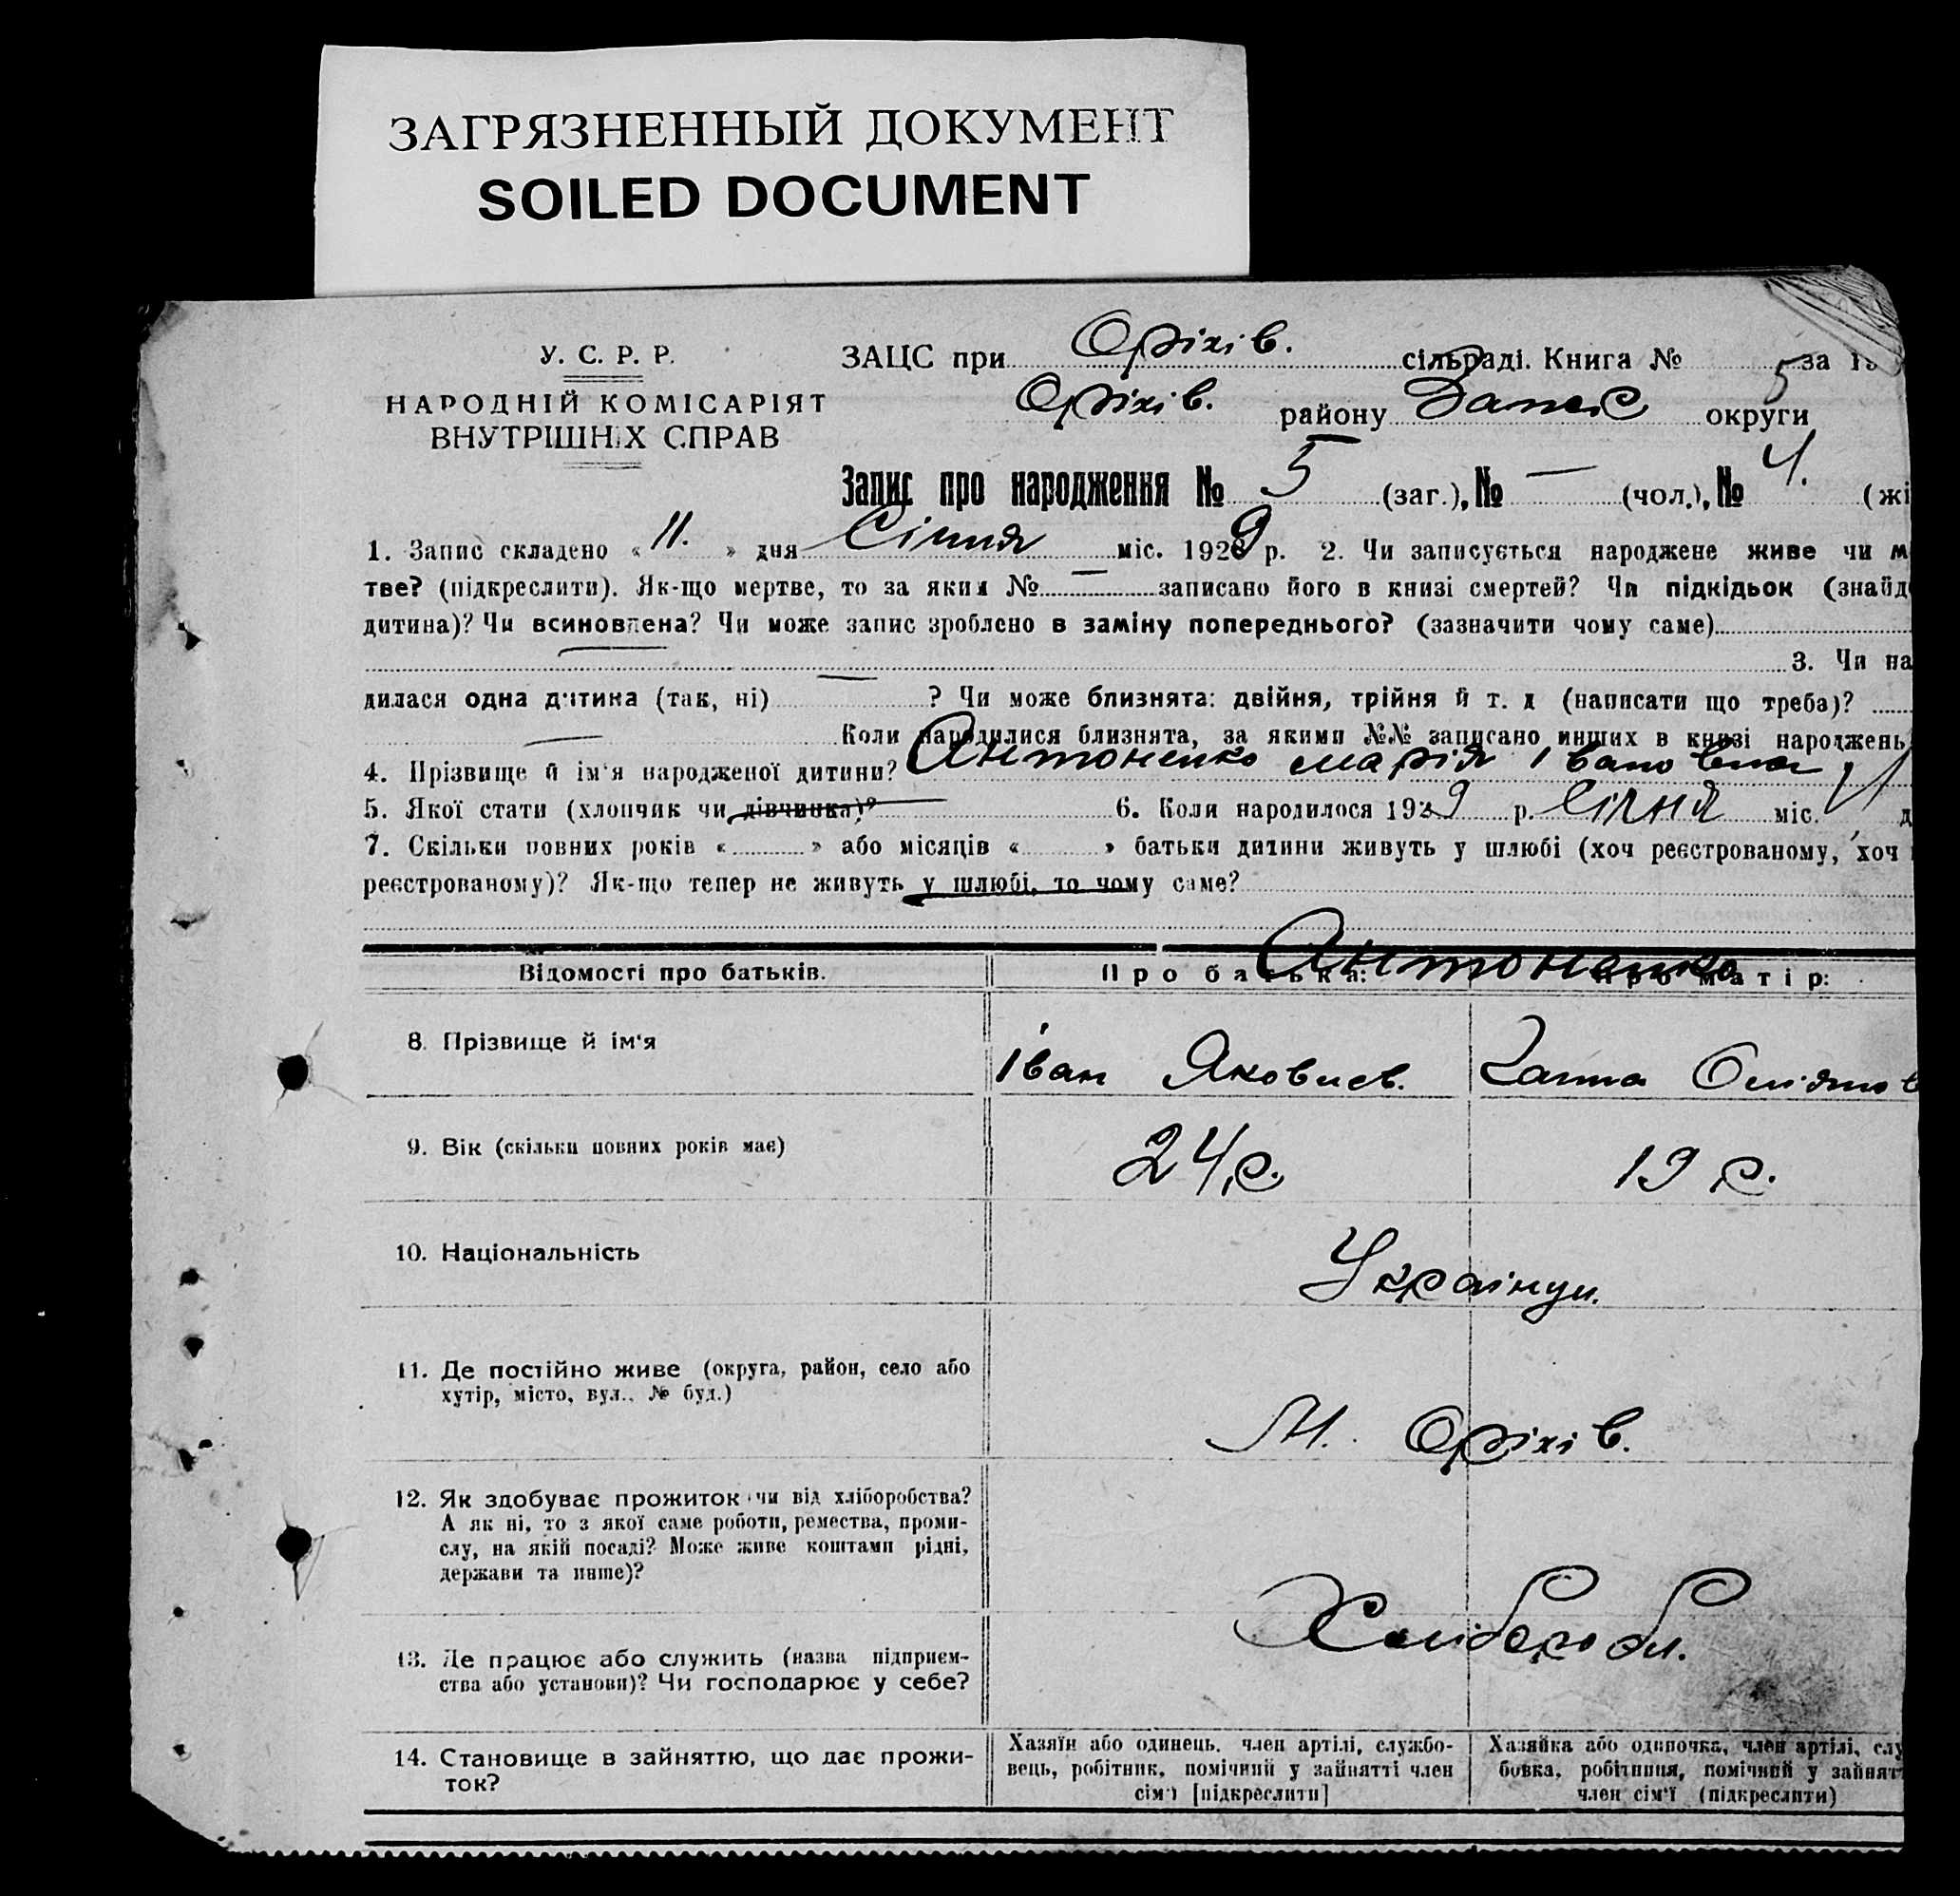 ЗАГРЯЗНЕННЫЙ ДОКУМЕНТ
SOILED DOCUMENT
У. С. Р. Р.
НАРОДНІЙ КОМІСАРІЯТ
ВНУТРІШНІХ СПРАВ
ЗАЦС при Оріхів. сільраді. Книга № 5 за 19
Оріхів. району округи
Запис про народження № 5 (заг.), № — (чол.), № 4. (жі
1. Запис складено « 11. » дня Січня міс. 1929 р. 2. Чи записується народжене живе чи м
тве? (підкреслити). Як-що мертве, то за яким № — записано його в книзі смертей? Чи підкідьок (знайд
дитина)? Чи всиновлена? Чи може запис зроблено в заміну попереднього? (зазначити чому саме)
3. Чи на
дилася одна дитина (так, ні) — ? Чи може близнята: двійня, трійня й т. д (написати що треба)?
— Коли народилися близнята, за якими №№ записано инших в книзі народжень
4. Прізвище й ім'я народженої дитини? Антоненко Марія Івановна
5. Якої стати (хлопчик чи дівчинка)? 6. Коли народилося 1929 р. Січня міс. 1 д
7. Скільки повних років « » або місяців « » батьки дитини живуть у шлюбі (хоч реєстрованому, хоч
реєстрованому)? Як-що тепер не живуть у шлюбі, то чому саме?
Відомості про батьків. Про батька: Про матір:
Антоненко
8. Прізвище й ім'я Іван Яковлев. Ганна
9. Вік (скільки повних років має) 24 р. 19 р.
10. Національність Українці.
11. Де постійно живе (округа, район, село або
хутір, місто, вул., № буд.)
М. Оріхів.
12. Як здобуває прожиток чи від хліборобства?
А як ні, то з якої саме роботи, ремества, проми-
слу, на якій посаді? Може живе коштами рідні,
держави та инше)?
Хлібороби.
13. Де працює або служить (назва підприєм-
ства або установи)? Чи господарює у себе?
14. Становище в зайняттю, що дає прожи-
ток?
Хазяїн або одинець, член артілі, службо-
вець, робітник, помічний у зайнятті член
сім'ї [підкреслити]
Хазяйка або одиночка, член артілі, слу
бовка, робітниця, помічний у зайнят
член сім'ї (підкреслити)